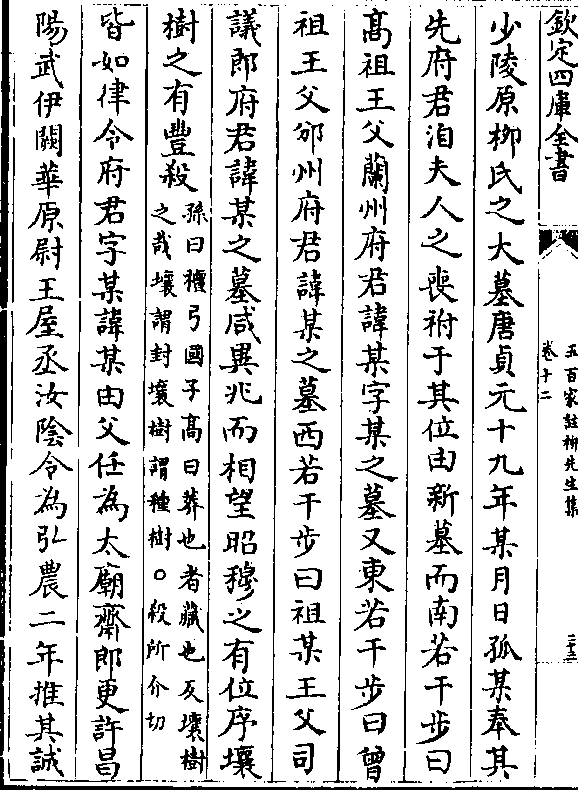 欽定四庫全書
五百家註柳先生集
卷十二
三十三
少陵原柳氏之大墓唐貞元十九年某月日孤某奉其
先府君洎夫人之喪祔于其位由新墓而南若干步曰
高祖王父蘭州府君諱某字某之墓又東若干步曰曾
祖王父邠州府君諱某之墓西若干步曰祖某王父司
議郎府君諱某之墓咸異兆而相望昭穆之有位序壤
樹之有豐殺
孫曰檀弓國子高曰葬也者藏也反壤樹
之哉壤謂封壤樹謂種樹○殺所介切
皆如律令府君字某諱某由父任為太廟齋郎更許昌
陽武伊闕華原尉王屋丞汝陰令為弘農二年推其誠